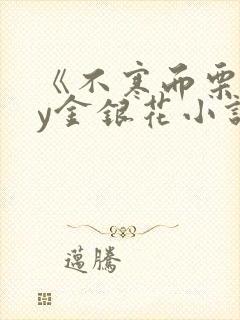 《不寒而栗
y金银花小说
邁騰